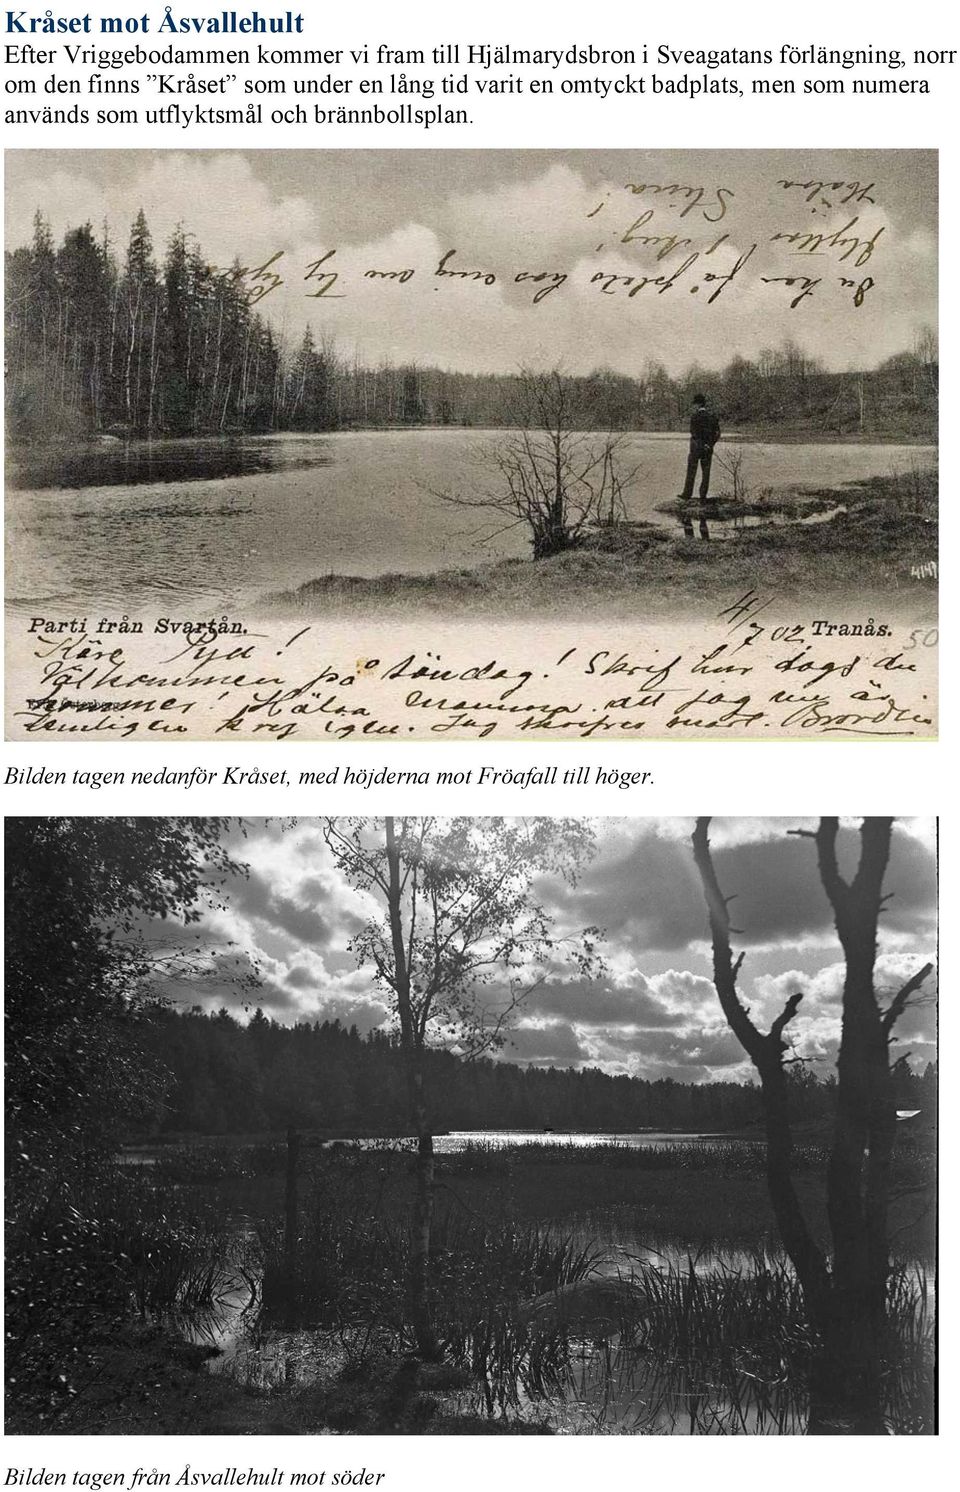 Kråset mot Åsvallehult
Efter Vriggebodammen kommer vi fram till Hjälmarydsbron i Sveagatans förlängning, norr
om den finns ”Kråset” som under en lång tid varit en omtyckt badplats, men som numera
används som utflyktsmål och brännbollsplan.
Hälsa Stina!
du kan få plats hos mig om ty
4149
Parti från Svartån.
4/7 02 Tranås.
50
Käre !
Välkommen på söndag! Skrif hur dags du
kommer! Hälsa att jag nu är
temligen kry igen. Jag mark.
Bilden tagen nedanför Kråset, med höjderna mot Fröafall till höger.
Bilden tagen från Åsvallehult mot söder